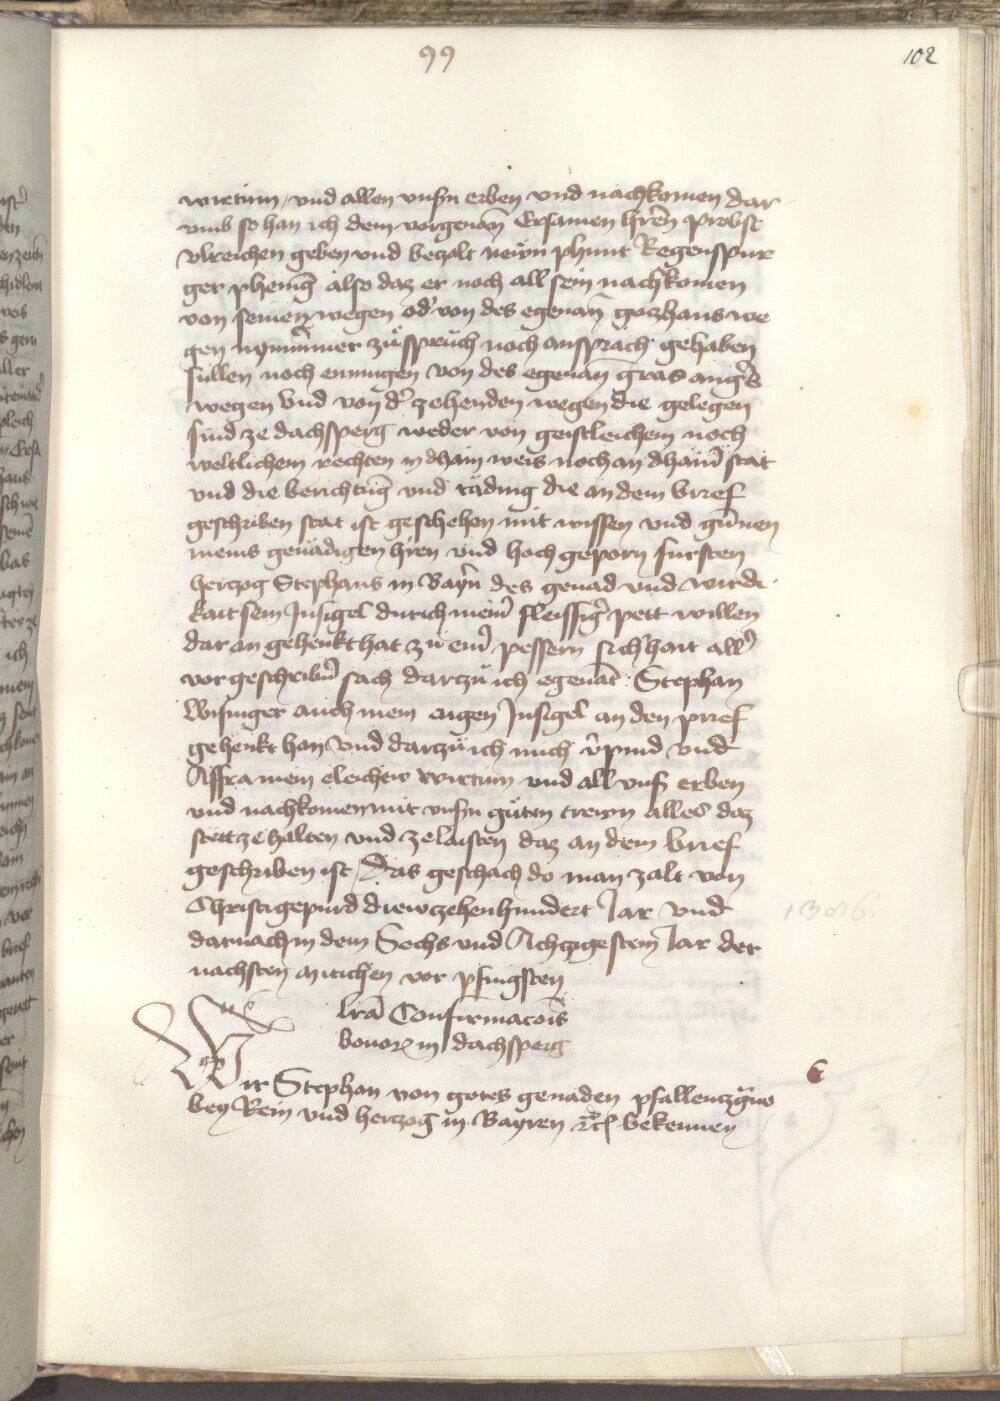 99
102
wirtinn / vnd allen vnsn̄ erben vnd nachkomen dar
vmb so han ich dem vorgenan̄ Ersamen hr̄en probst
vlreichen geben vnd beczalt newn phunt Regenspur
ger phenīg also daz er noch all sein nachkomen
von seinen wegen od' von des egenan̄ goczhaus we
gen nymm̄er zuͤspruch noch ansprach gehaben
sullen noch enmugen von des egenan̄ gras ang's
wegen Vnd von d' zehenden wegen die gelegen
sind ze dachsperg weder von geistleichem noch
weltlichem rechten in dhain weis noch an dhain' stat
vnd die berichtūg vnd taͤding die an dem brief
geschriben stat ist geschehen mit wissen vnd guͤnnen
meins genaͤdigen h'ren vnd hoch geporn fursten
herczog Stephans in Bayrn̄ des genad vnd wirdi
kait sein Insigel durich mein' fleissig' pett willen
dar an gehenkt hat zu ein' pessern sich'hait all'
vorgeschribn' sach darczuͤ ich egenāt Stephan
Wisinger auch mein aigen Insigel an den prief
gehenkt han Vnd darczuͤ ich mich v'pind vnd
Affra mein eleichew wirtinn vnd all vns' erben
vnd nachkomen mit vnsn̄ guͤten trewn alles daz
staͤtt ze halten vnd ze laisten daz an dem brief
geschriben ist / Das geschach do man zalt von
Christi gepurd drewczehenhundert Jar vnd
1386.
darnach in dem Sechs vnd Achczigestem Jar der
nachsten mitichen vor pfingsten
lrā Confirmacōis
bonoꝝ in dachsperg
Wir Stephan von gotes genaden pfallenczg'uͤe
bey Rein vnd herczog in Bayren ꝛc̄ bekennen